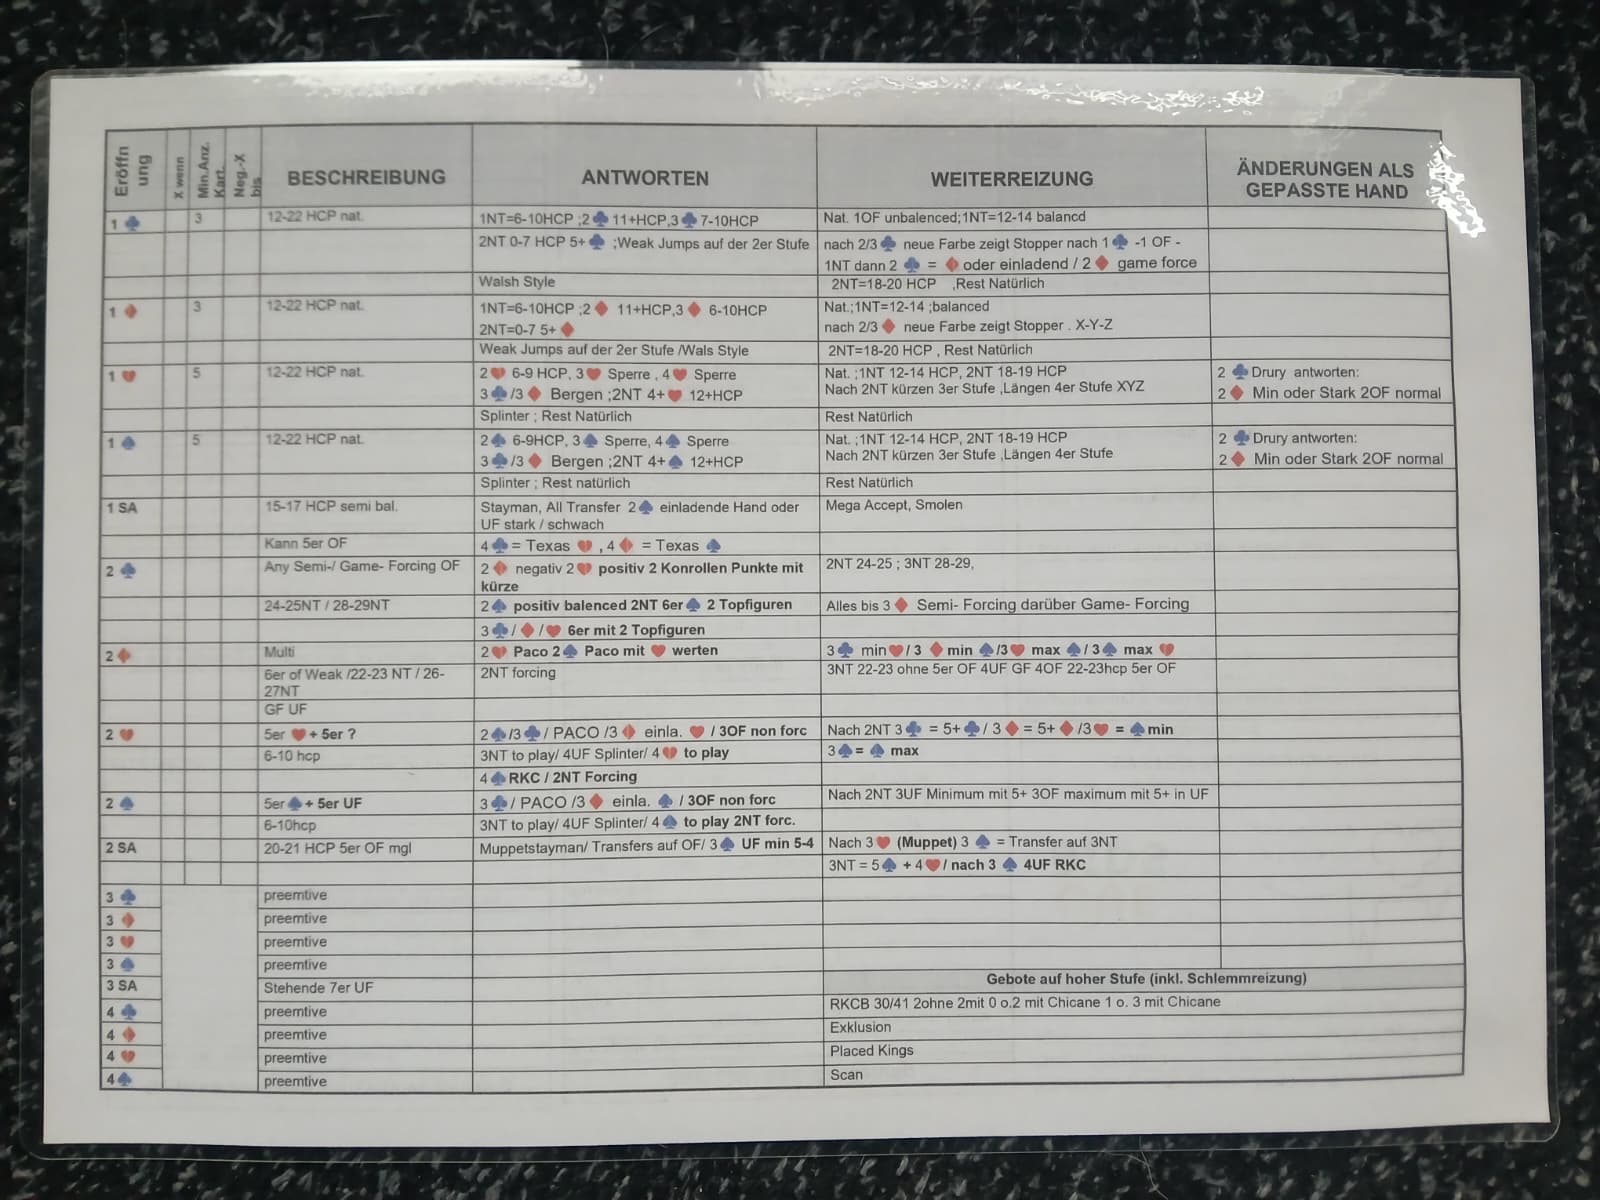 Eröffn ung | X wenn | Min.Anz. Kart. | Neg.-X bis | BESCHREIBUNG | ANTWORTEN | WEITERREIZUNG | ÄNDERUNGEN ALS GEPASSTE HAND
1 ♣ | 3 | 12-22 HCP nat. | 1NT=6-10HCP ;2♣ 11+HCP,3♣7-10HCP | Nat. 1OF unbalenced;1NT=12-14 balancd
2NT 0-7 HCP 5+♣ ;Weak Jumps auf der 2er Stufe | nach 2/3♣ neue Farbe zeigt Stopper nach 1♣ -1 OF -
1NT dann 2 ♣ = ♦ oder einladend / 2♦ game force
Walsh Style | 2NT=18-20 HCP ,Rest Natürlich
1 ♦ | 3 | 12-22 HCP nat. | 1NT=6-10HCP ;2♦ 11+HCP,3♦ 6-10HCP | Nat.;1NT=12-14 ;balanced
2NT=0-7 5+♦ | nach 2/3♦ neue Farbe zeigt Stopper . X-Y-Z
Weak Jumps auf der 2er Stufe /Wals Style | 2NT=18-20 HCP , Rest Natürlich
1 ♥ | 5 | 12-22 HCP nat. | 2♥ 6-9 HCP, 3♥ Sperre , 4♥ Sperre | Nat. ;1NT 12-14 HCP, 2NT 18-19 HCP | 2 ♣Drury antworten:
3♣/3♦ Bergen ;2NT 4+♥ 12+HCP | Nach 2NT kürzen 3er Stufe ,Längen 4er Stufe XYZ | 2♦ Min oder Stark 2OF normal
Splinter ; Rest Natürlich | Rest Natürlich
1 ♠ | 5 | 12-22 HCP nat. | 2♠ 6-9HCP, 3♠ Sperre, 4♠ Sperre | Nat. ;1NT 12-14 HCP, 2NT 18-19 HCP | 2 ♣Drury antworten:
3♣/3♦ Bergen ;2NT 4+♠ 12+HCP | Nach 2NT kürzen 3er Stufe ,Längen 4er Stufe | 2♦ Min oder Stark 2OF normal
Splinter ; Rest natürlich | Rest Natürlich
1 SA | 15-17 HCP semi bal. | Stayman, All Transfer 2♠ einladende Hand oder | Mega Accept, Smolen
UF stark / schwach
Kann 5er OF | 4♣= Texas ♥ , 4♦ = Texas ♠
2 ♣ | Any Semi-/ Game- Forcing OF | 2♦ negativ 2♥ positiv 2 Konrollen Punkte mit | 2NT 24-25 ; 3NT 28-29,
kürze
24-25NT / 28-29NT | 2♠ positiv balenced 2NT 6er♠ 2 Topfiguren | Alles bis 3♦ Semi- Forcing darüber Game- Forcing
3♣/♦/♥ 6er mit 2 Topfiguren
2 ♦ | Multi | 2♥ Paco 2♠ Paco mit ♥ werten | 3♣ min♥/3 ♦min ♠/3♥ max ♠/3♠ max ♥
6er of Weak /22-23 NT / 26- | 2NT forcing | 3NT 22-23 ohne 5er OF 4UF GF 4OF 22-23hcp 5er OF
27NT
GF UF
2 ♥ | 5er ♥+ 5er ? | 2♠/3♣/ PACO /3♦ einla. ♥ / 3OF non forc | Nach 2NT 3♣ = 5+♣/ 3♦= 5+♦/3♥ = ♠min
6-10 hcp | 3NT to play/ 4UF Splinter/ 4♥ to play | 3♠= ♠ max
4♠RKC / 2NT Forcing
2 ♠ | 5er♠+ 5er UF | 3♣/ PACO /3♦ einla. ♠ / 3OF non forc | Nach 2NT 3UF Minimum mit 5+ 3OF maximum mit 5+ in UF
6-10hcp | 3NT to play/ 4UF Splinter/ 4♠ to play 2NT forc.
2 SA | 20-21 HCP 5er OF mgl | Muppetstayman/ Transfers auf OF/ 3♠ UF min 5-4 | Nach 3♥ (Muppet) 3 ♠ = Transfer auf 3NT
3NT = 5♠ + 4♥/ nach 3 ♠ 4UF RKC
3 ♣ | preemtive
3 ♦ | preemtive
3 ♥ | preemtive
3 ♠ | preemtive
3 SA | Stehende 7er UF | Gebote auf hoher Stufe (inkl. Schlemmreizung)
4 ♣ | preemtive | RKCB 30/41 2ohne 2mit 0 o.2 mit Chicane 1 o. 3 mit Chicane
4 ♦ | preemtive | Exklusion
4 ♥ | preemtive | Placed Kings
4♠ | preemtive | Scan